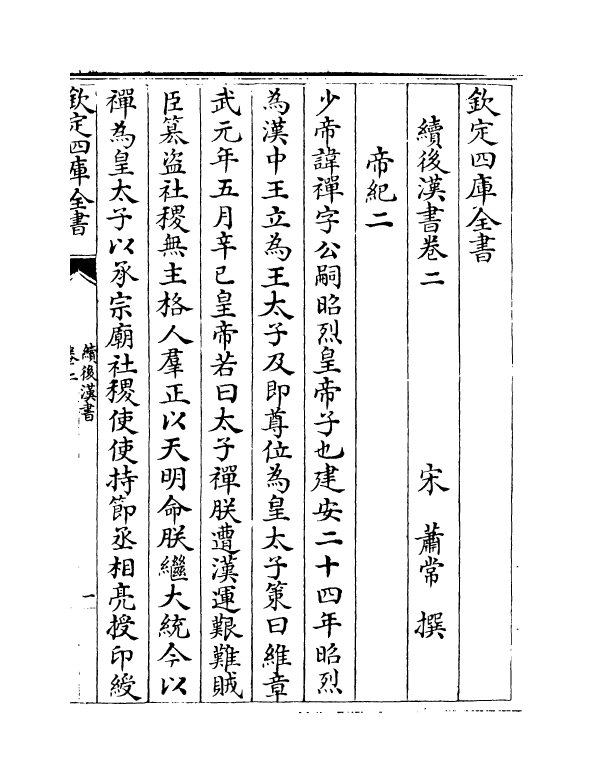 欽定四庫全書
續後漢書卷二
宋 蕭常 撰
帝紀二
少帝諱禪字公嗣昭烈皇帝子也建安二十四年昭烈
為漢中王立為王太子及即尊位為皇太子策曰維章
武元年五月辛巳皇帝若曰太子禪朕遭漢運艱難賊
臣簒盜社稷無主格人羣正以天明命朕繼大統今以
禪為皇太子以承宗廟社稷使使持節丞相亮授印綬
欽定四庫全書
續後漢書
卷二
一